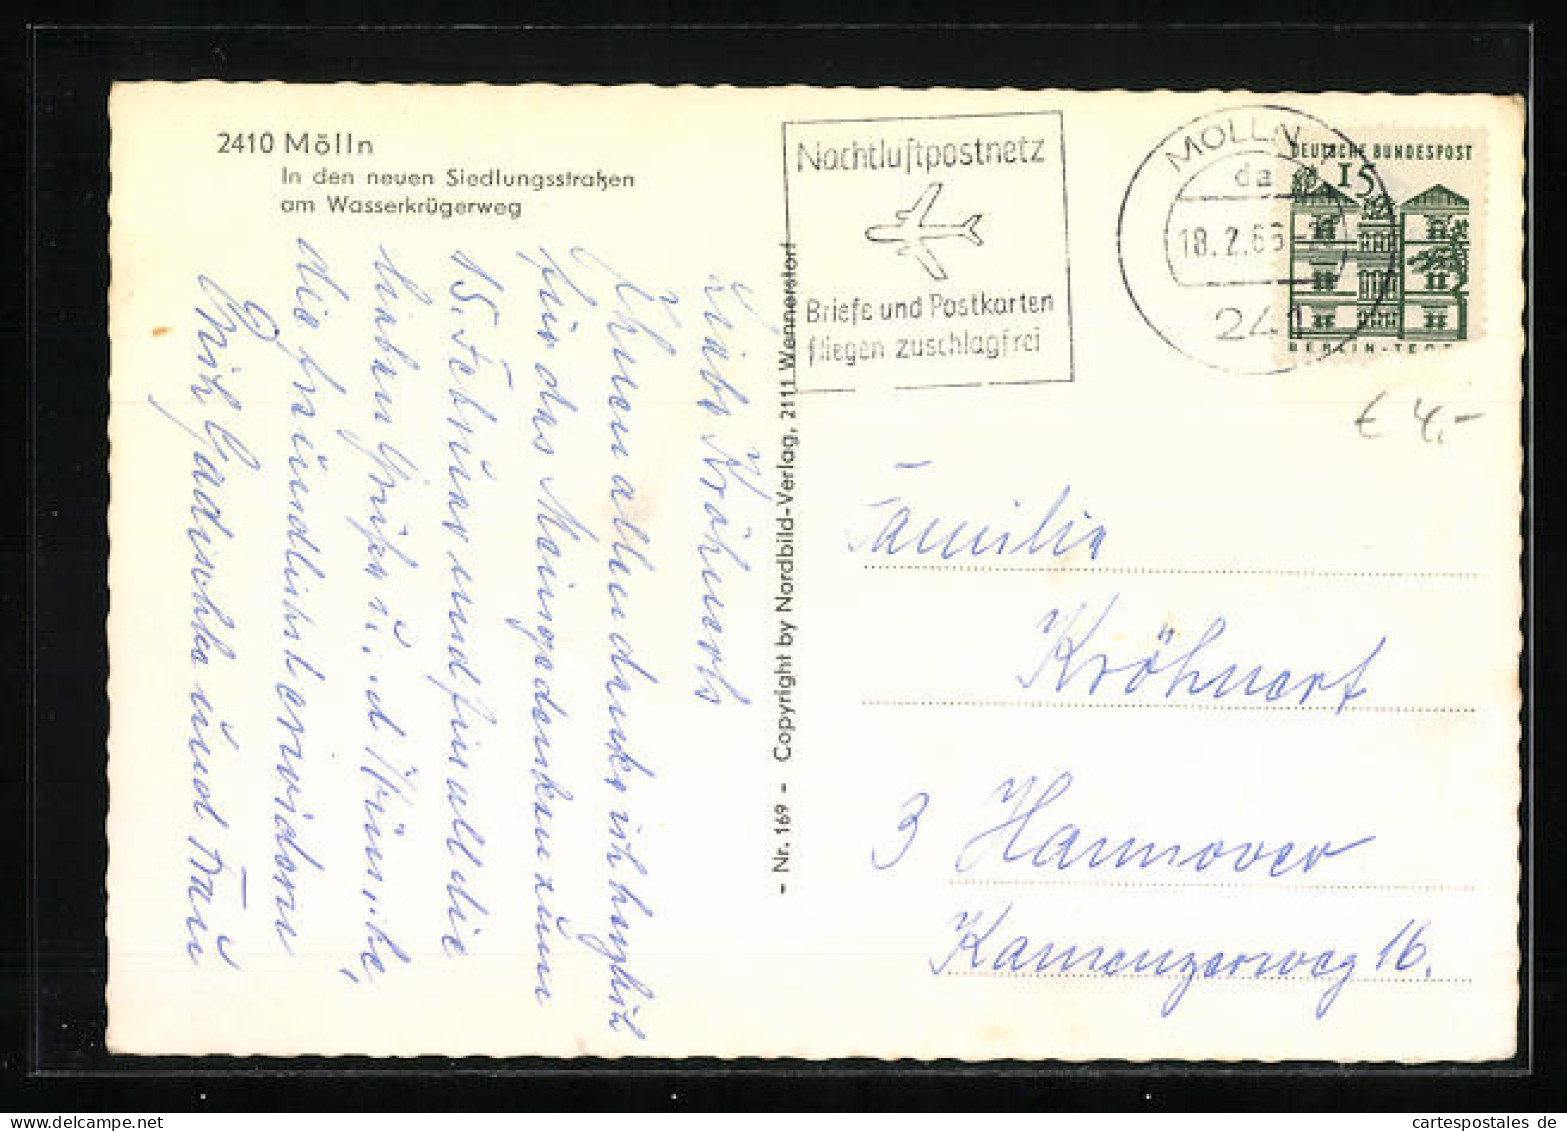 2410 Mölln
In den neuen Siedlungsstraßen
am Wasserkrügerweg
Nachtluftpostnetz
Briefe und Postkarten
fliegen zuschlagfrei
MÖLLN
da
18.2.66
241
DEUTSCHE BUNDESPOST
15
BERLIN-TEGEL
€ 4,-
Liebe Kröhnerts
Ihnen allen danke ich herzlich
für das Meingedenken zum
15. Februar und für all die
lieben Grüße u. d. Wünsche,
die freundlichst erwidern
Erich und Frau
- Nr. 169 - Copyright by Nordbild-Verlag, 2111 Wennerstorf
Familie
Kröhnert
3 Hannover
Kamenzerweg 16.
cartespostales de